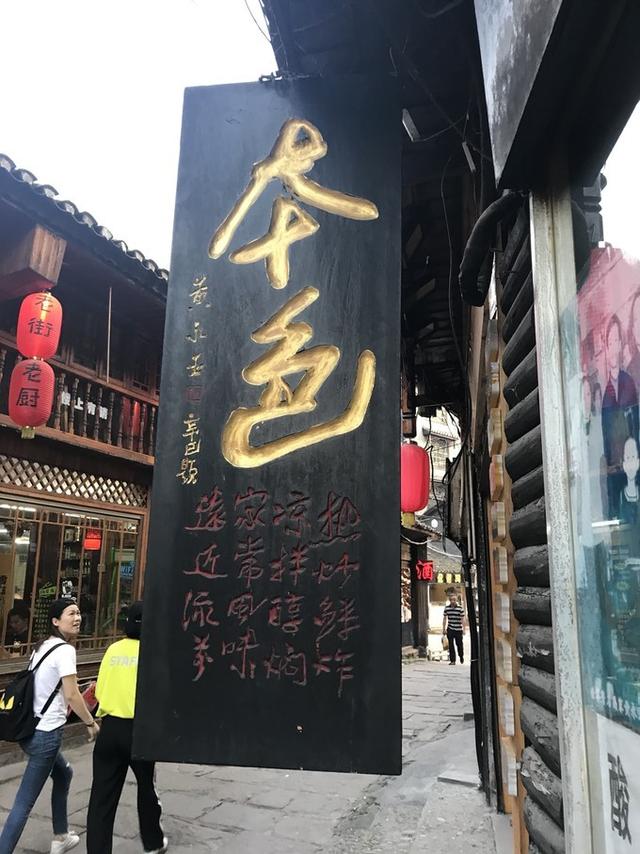 本色
黄永玉
辛巳题
热炒鲜炸
凉拌醇焖
家常风味
远近流芳
老街
老厨
酒
STAFF
WIFI
酸